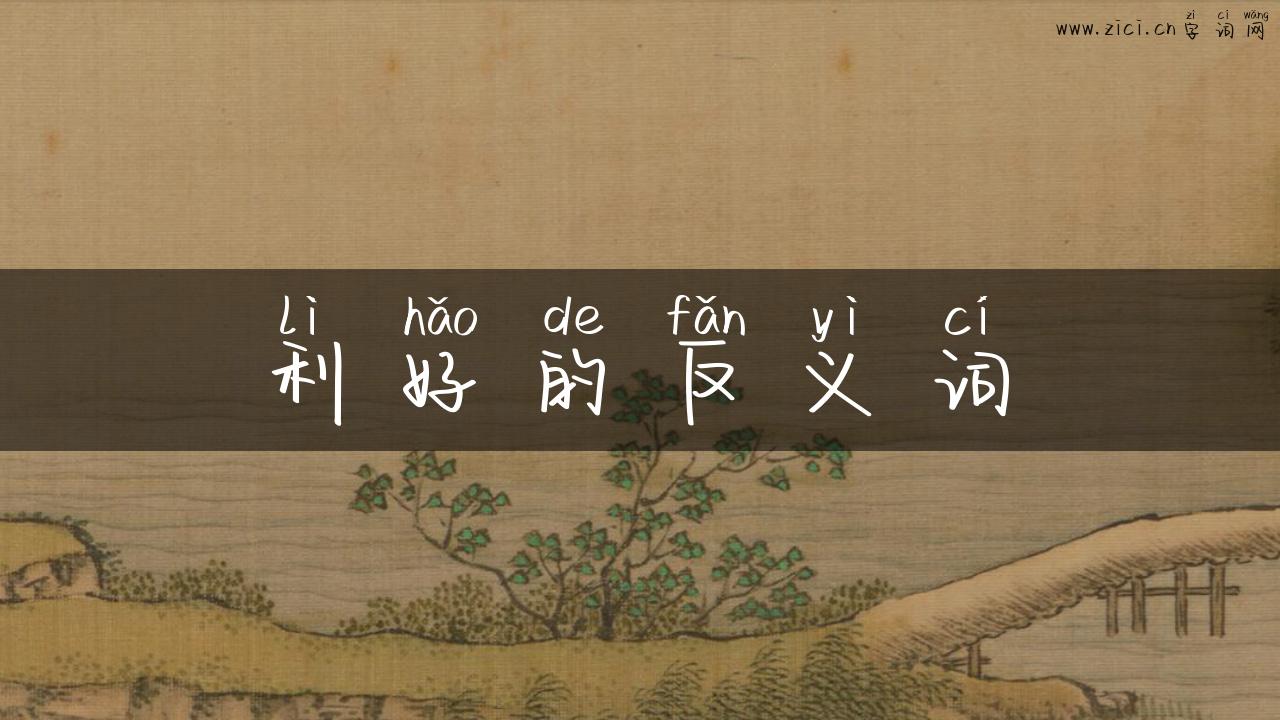 zì cí wǎng
www.zici.cn 字 词 网
lì hǎo de fǎn yì cí
利 好 的 反 义 词